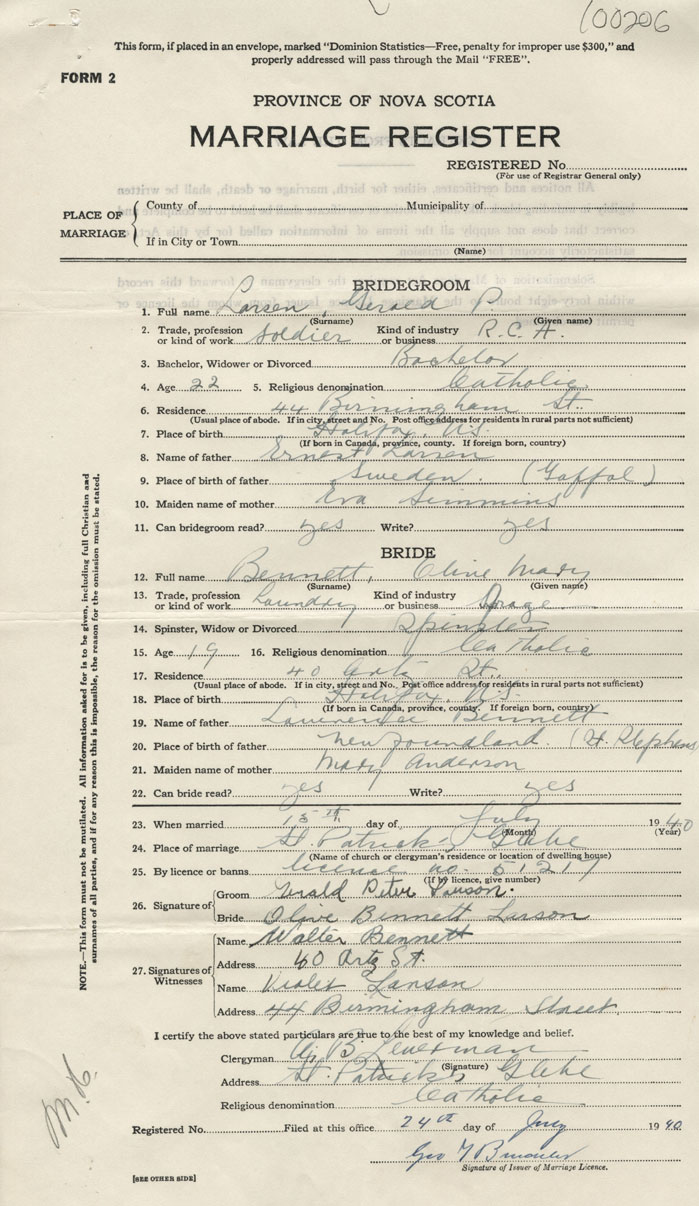 100206
This form, if placed in an envelope, marked "Dominion Statistics—Free, penalty for improper use $300," and
properly addressed will pass through the Mail "FREE".
FORM 2
PROVINCE OF NOVA SCOTIA
MARRIAGE REGISTER
REGISTERED No.
(For use of Registrar General only)
PLACE OF MARRIAGE
County of Municipality of
If in City or Town
(Name)
BRIDEGROOM
1. Full name Larsen, Gerald P.
(Surname) (Given name)
2. Trade, profession or kind of work Soldier Kind of industry or business R.C.A.
3. Bachelor, Widower or Divorced Bachelor
4. Age 22 5. Religious denomination Catholic
6. Residence 44 Birmingham St.
(Usual place of abode. If in city, street and No. Post office address for residents in rural parts not sufficient)
7. Place of birth Halifax, N.S.
(If born in Canada, province, county. If foreign born, country)
8. Name of father Ernest Larsen
9. Place of birth of father Sweden. (
10. Maiden name of mother Eva Simmins
11. Can bridegroom read? yes Write? yes
BRIDE
12. Full name Bennett, Olive Mary
(Surname) (Given name)
13. Trade, profession or kind of work Laundry Kind of industry or business
14. Spinster, Widow or Divorced Spinster
15. Age 19 16. Religious denomination Catholic
17. Residence 40 Artz St.
(Usual place of abode. If in city, street and No. Post office address for residents in rural parts not sufficient)
18. Place of birth Halifax, N.S.
(If born in Canada, province, county. If foreign born, country)
19. Name of father Lawrence Bennett
20. Place of birth of father Newfoundland. (St. Stephens
21. Maiden name of mother Mary Anderson
22. Can bride read? yes Write? yes
23. When married 15th day of July 1940
(Month) (Year)
24. Place of marriage St. Patrick's Glebe
(Name of church or clergyman's residence or location of dwelling house)
25. By licence or banns licence no. 51217
(If by licence, give number)
26. Signature of Groom Gerald Peter Larson.
Bride Olive Bennett Larson
27. Signatures of Witnesses
Name Walter Bennett
Address 40 Artz St.
Name Violet Larson
Address 44 Birmingham Street
I certify the above stated particulars are true to the best of my knowledge and belief.
Clergyman
(Signature)
Address St. Patrick's Glebe
Religious denomination Catholic
Registered No. Filed at this office 24th day of July 1940.
Geo
Signature of Issuer of Marriage Licence.
[SEE OTHER SIDE]
NOTE.—This form must not be mutilated. All information asked for is to be given, including full Christian and
surnames of all parties, and if for any reason this is impossible, the reason for the omission must be stated.